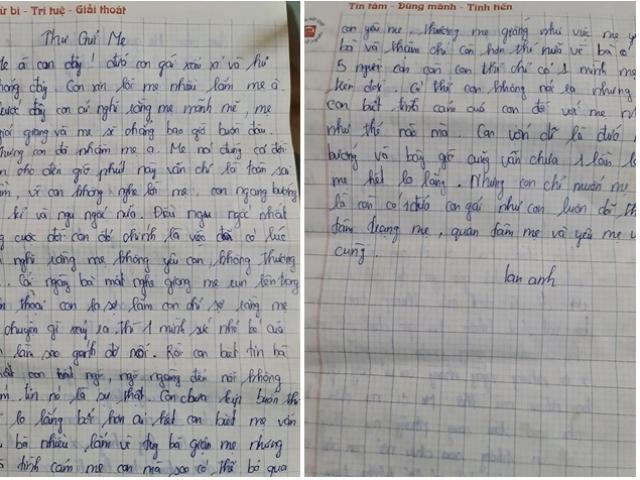 ừ bi - Trí tuệ - Giải thoát
Thư Gửi Mẹ
Mẹ à con đây! đứa con gái xấu xí và hư
hỏng đây. Con xin lỗi mẹ nhiều lắm mẹ à.
được đây con cứ nghĩ rằng mẹ mãnh mẽ, mẹ
giỏi giang và mẹ sẽ chẳng bao giờ buồn đâu.
nhưng con đã nhầm mẹ ạ. Mẹ nói đúng cả đời
cho đến giờ phút này vẫn chỉ là toàn sai
lầm, vì con không nghe lời mẹ. con ngang bướng
kỉ và ngu ngốc nữa. Điều ngu ngốc nhất
cuộc đời con đó chính là việc đã có lúc
nghĩ rằng mẹ không yêu con, không thương
Cái ngày bà mất nghe giọng mẹ run lên trong
thoại con lo sợ lắm con chỉ sợ rằng mẹ
chuyện gì xảy ra thì 1 mình sức nhỏ bé của
làm sao gánh đỡ nổi. Rồi con biết tin bà
mất con bất ngờ, ngỡ ngàng đến nỗi không
tin nó là sự thật. Con chưa kịp buồn thì
lo lắng bởi hơn ai hết con biết mẹ vẫn
bà nhiều lắm về tuy bà giận mẹ nhưng
tình cảm mẹ con mà sao có thể bỏ qua
Tín tâm - Dũng mãnh - Tinh tiến
con yêu mẹ. thương mẹ giống như việc mẹ y
bà và thậm chí con hơn thế nữa vì bà có
5 người con còn con thì chỉ có 1 mình mẹ
trên đời. Có thể con không nói ra nhưng
con biết tình cảm của con đối với mẹ n
như thế nào mà. Con vốn dĩ là đứa
bướng và bây giờ cũng vẫn chưa 1 lần l
mẹ hết lo lắng. Nhưng con chỉ muốn mẹ
là còn có 1 đứa con gái như con luôn dõi th
tâm trạng mẹ, quan tâm mẹ và yêu mẹ v
cùng.
lan anh